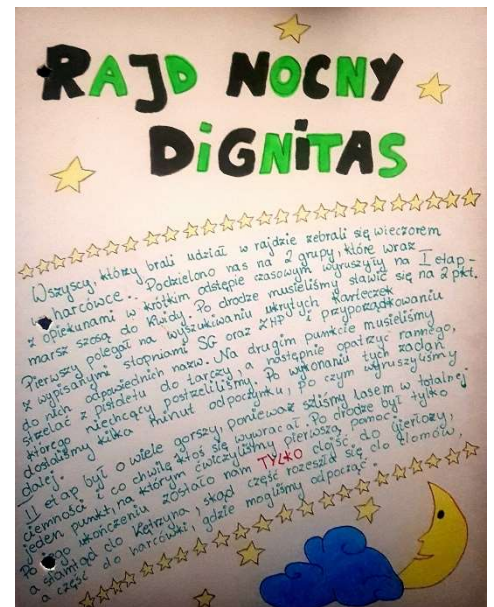 RAJD NOCNY
DiGNiTAS
Wszyscy, którzy brali udział w rajdzie zebrali się wieczorem
w harcówce. Podzielono nas na 2 grupy, które wraz
z opiekunami w krótkim odstępie czasowym wyruszyły na I etap -
marsz szosą do Kaidy. Po drodze musieliśmy stawić się na 2 pkt.
Pierwszy polegał na wyszukiwaniu ukrytych karteczek
z wypisanymi stopniami SG oraz ZHP i przyporządkowaniu
do nich odpowiednich nazw. Na drugim punkcie musieliśmy
strzelać z pistoletu do tarczy, a następnie opatrzyć rannego,
którego niechcący postrzeliliśmy. Po wykonaniu tych zadań
dostaliśmy kilka minut odpoczynku, po czym wyruszyliśmy
dalej.
II etap był o wiele gorszy, ponieważ szliśmy lasem w totalnej
ciemności i co chwilę ktoś się wywracał. Po drodze był tylko
jeden punkt, na którym ćwiczyliśmy pierwszą pomoc.
Po jego ukończeniu zostało nam TYLKO dojść do Gierłoży,
a stamtąd do Kętrzyna, skąd część rozeszła się do domów,
a część do harcówki, gdzie mogliśmy odpocząć.